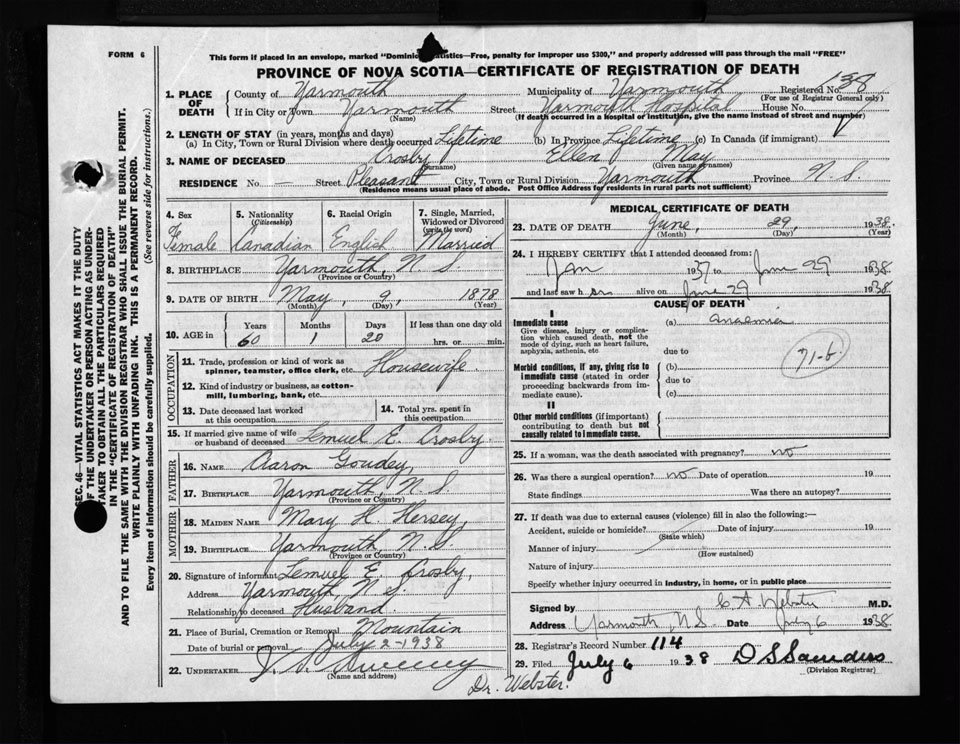 FORM 6
This form if placed in an envelope, marked "Dominion Statistics—Free, penalty for improper use $300," and properly addressed will pass through the mail "FREE"
PROVINCE OF NOVA SCOTIA—CERTIFICATE OF REGISTRATION OF DEATH
1. PLACE OF DEATH County of Yarmouth Municipality of Yarmouth Registered No. 138
(For use of Registrar General only)
If in City or Town Yarmouth Street Yarmouth Hospital House No.
(Name) (If death occurred in a Hospital or Institution, give the name instead of street and number)
2. LENGTH OF STAY (in years, months and days)
(a) In City, Town or Rural Division where death occurred Lifetime (b) In Province Lifetime (c) In Canada (if immigrant)
3. NAME OF DECEASED Crosby Ellen May
(Surname) (Given name or names)
RESIDENCE No. — Street Pleasant City, Town or Rural Division Yarmouth Province N. S.
(Residence means usual place of abode. Post Office Address for residents in rural parts not sufficient)
SEC. 46—VITAL STATISTICS ACT MAKES IT THE DUTY
OF THE UNDERTAKER OR PERSON ACTING AS UNDER-
TAKER TO OBTAIN ALL THE PARTICULARS REQUIRED
IN THE "CERTIFICATE OF REGISTRATION OF DEATH"
AND TO FILE THE SAME WITH THE DIVISION REGISTRAR WHO SHALL ISSUE THE BURIAL PERMIT.
WRITE PLAINLY WITH UNFADING INK. THIS IS A PERMANENT RECORD.
Every item of information should be carefully supplied. (See reverse side for instructions.)
4. Sex 5. Nationality 6. Racial Origin 7. Single, Married,
(Citizenship) Widowed or Divorced
(write the word)
Female Canadian English Married
8. BIRTHPLACE Yarmouth, N. S.
(Province or Country)
9. DATE OF BIRTH May, 9, 1878
(Month) (Day) (Year)
10. AGE in Years Months Days If less than one day old
60 1 20 hrs. or min.
OCCUPATION
11. Trade, profession or kind of work as
spinner, teamster, office clerk, etc. Housewife
12. Kind of industry or business, as cotton-
mill, lumbering, bank, etc.
13. Date deceased last worked
at this occupation
14. Total yrs. spent in
this occupation
15. If married give name of wife
or husband of deceased Lemuel E. Crosby.
FATHER
16. NAME Aaron Goudey,
17. BIRTHPLACE Yarmouth, N. S.
(Province or Country)
MOTHER
18. MAIDEN NAME Mary H. Hersey,
19. BIRTHPLACE Yarmouth, N. S.
(Province or Country)
20. Signature of informant Lemuel E. Crosby,
Address Yarmouth, N. S.
Relationship to deceased Husband.
21. Place of Burial, Cremation or Removal Mountain
Date of burial or removal July 2-1938
22. UNDERTAKER J. Sweeney
(Name and address)
MEDICAL CERTIFICATE OF DEATH
23. DATE OF DEATH June, 29, 1938.
(Month) (Day) (Year)
24. I HEREBY CERTIFY that I attended deceased from:
Jan 1937 to June 29 1938
and last saw her alive on June 29 1938
CAUSE OF DEATH
I
Immediate cause (a) Anaemia
Give disease, injury or complica-
tion which caused death, not the
mode of dying, such as heart failure,
asphyxia, asthenia, etc due to
71-b.
Morbid conditions, if any, giving rise to (b)
immediate cause (stated in order due to
proceeding backwards from im-
mediate cause). (c)
II
Other morbid conditions (if important)
contributing to death but not
causally related to immediate cause.
25. If a woman, was the death associated with pregnancy? no
26. Was there a surgical operation? no Date of operation 19
State findings Was there an autopsy?
27. If death was due to external causes (violence) fill in also the following:—
Accident, suicide or homicide? Date of injury 19
(State which)
Manner of injury
(How sustained)
Nature of injury
Specify whether injury occurred in industry, in home, or in public place
Signed by C. A. Webster M.D.
Address Yarmouth, N.S. Date July 6 1938
28. Registrar's Record Number 114
29. Filed July 6 1938 D S Saunders
(Division Registrar)
Dr. Webster.